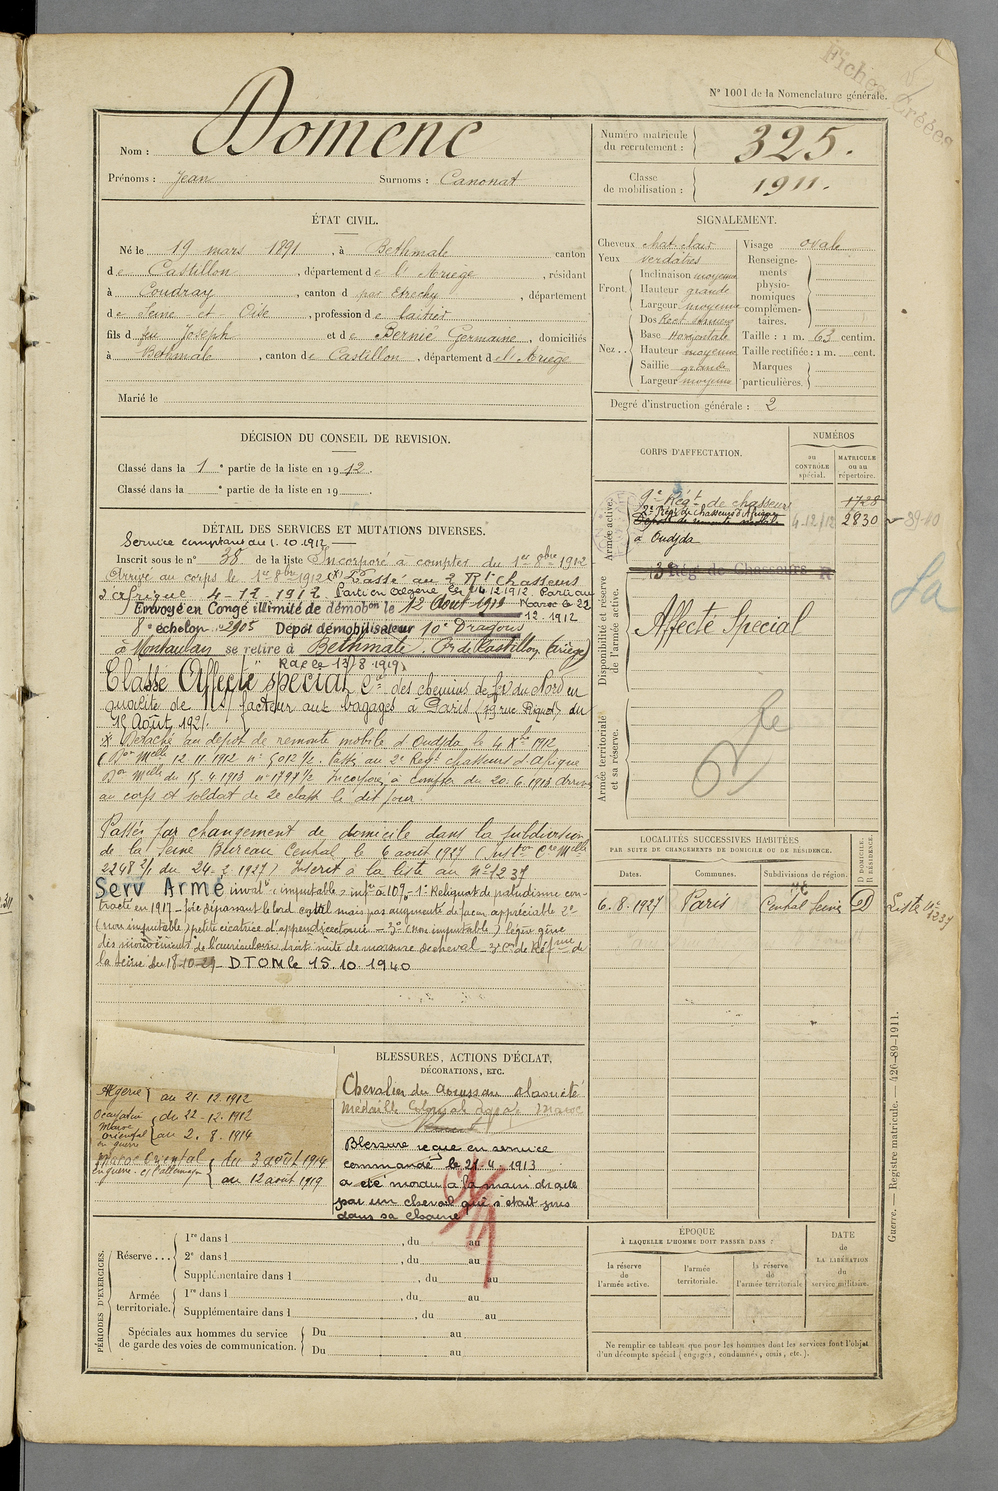 Fiches créées
N° 1001 de la Nomenclature générale.
Nom : Domenc
Prénoms : Jean Surnoms : Canonat
Numéro matricule du recrutement : 325.
Classe de mobilisation : 1911.
ÉTAT CIVIL.
Né le 19 mars 1891, à Bethmale canton
de Castillon, département de l'Ariège, résidant
à Coudray, canton d par Etrechy, département
de Seine et Oise, profession de laitier
fils d feu Joseph et de Bernié Germaine, domiciliés
à Bethmale, canton de Castillon, département d l'Ariège
Marié le
SIGNALEMENT.
Cheveux chat. clair
Yeux verdâtres
Front.
Inclinaison moyenne
Hauteur grande
Largeur moyenne
Nez..
Dos Rect.
Base Horizontale
Hauteur moyenne
Saillie grande
Largeur moyenne
Visage ovale
Renseignements physionomiques complémentaires.
Taille : 1 m. 63 centim.
Taille rectifiée : 1 m. cent.
Marques particulières.
Degré d'instruction générale : 2
DÉCISION DU CONSEIL DE REVISION.
Classé dans la 1e partie de la liste en 1912.
Classé dans la e partie de la liste en 19
CORPS D'AFFECTATION.
NUMÉROS
au CONTRÔLE spécial.
MATRICULE ou au répertoire.
Armée active.
9e Régt de chasseurs 1728
2e Régt de Chasseurs d'Afrique 4-12/12 2830
Dépôt de remonte mobile
à Oudjda
39-40
Disponibilité et réserve de l'armée active.
13e Régt de Chasseurs
Affecté Spécial
La
Armée territoriale et sa réserve.
DÉTAIL DES SERVICES ET MUTATIONS DIVERSES.
Service comptant du 1.10.1912
Inscrit sous le n° 38 de la liste Incorporé à compter du 1er 8bre 1912
Arrivé au corps le 1er 8bre 1912 (x) Passé au 2 Rt Chasseurs
d'afrique 4-12-1912 Parti en Algérie le 4.12.1912. Parti au
Maroc le 22
12.1912
Envoyé en Congé illimité de démobon le 12 Août 1919
8e échelon n° 2905 Dépôt démobilisateur 10e Dragons
à Montauban se retire à Bethmale, Con de Castillon (Ariège)
RdC le 13/8/1919)
Classé Affecté spécial des chemins de fer du Nord en
qualité de facteur aux bagages à Paris (19 rue Riquet) du
15 Août 1921.
x Détaché au dépôt de remonte mobile d'Oudjda le 4 Xbre 1912
(Don Melle 12.11.1912 n° 5012 1/2. Passé au 2e Régt chasseurs d'Afrique
Don Melle du 15.4.1913 n° 1798 1/2 Incorporé à compter du 20.6.1913 Arrivé
au corps et soldat de 2e classe le dit jour.
Passé par changement de domicile dans la subdivision
de la Seine Bureau Central le 6 aout 1927 (Inston Cre Melle
2248 2/1 du 24.2.1927) Inscrit à la liste au N° 1237
Serv Armé invalé imputable infre à 10% - 1° Reliquat de paludisme con-
tracté en 1917 - foie dépassant le bord costal mais pas augmenté de façon appréciable 2°
(non imputable) petite cicatrice d'appendicectomie - 3° (non imputable) légère gêne
des mouvements de l'auriculaire droit suite de morsure de cheval - 3e Con de Réfme de
la Seine du 18-10-29 - DTOM le 15.10.1940
LOCALITÉS SUCCESSIVES HABITÉES
PAR SUITE DE CHANGEMENTS DE DOMICILE OU DE RÉSIDENCE.
Dates. Communes. Subdivisions de région. D DOMICILE. R RÉSIDENCE.
6.8.1927 Paris Central Seine D
Liste N° 1237
Algérie au 21.12.1912
Maroc oriental en guerre du 22-12-1912
au 2.8.1914
Maroc Oriental du 3 août 1914
en guerre c/ l'allemagne au 12 août 1919
BLESSURES, ACTIONS D'ÉCLAT,
DÉCORATIONS, ETC.
Chevalier du Ouissam Alaouite
Médaille Coloniale Agrafe Maroc
Blessure reçue en service
commandé le 21.4.1913
a été mordu à la main droite
par un cheval qui s'était pris
dans sa chaine
PÉRIODES D'EXERCICES.
Réserve...
1re dans l , du au
2e dans l , du au
Supplémentaire dans l , du au
Armée territoriale.
1re dans l , du au
Supplémentaire dans l , du au
Spéciales aux hommes du service de garde des voies de communication.
Du au
Du au
ÉPOQUE
À LAQUELLE L'HOMME DOIT PASSER DANS :
la réserve de l'armée active.
l'armée territoriale.
la réserve de l'armée territoriale
DATE de LA LIBÉRATION du service militaire.
Ne remplir ce tableau que pour les hommes dont les services font l'objet
d'un décompte spécial (engagés, condamnés, omis, etc.).
Guerre. — Registre matricule. — 426-89-1911.